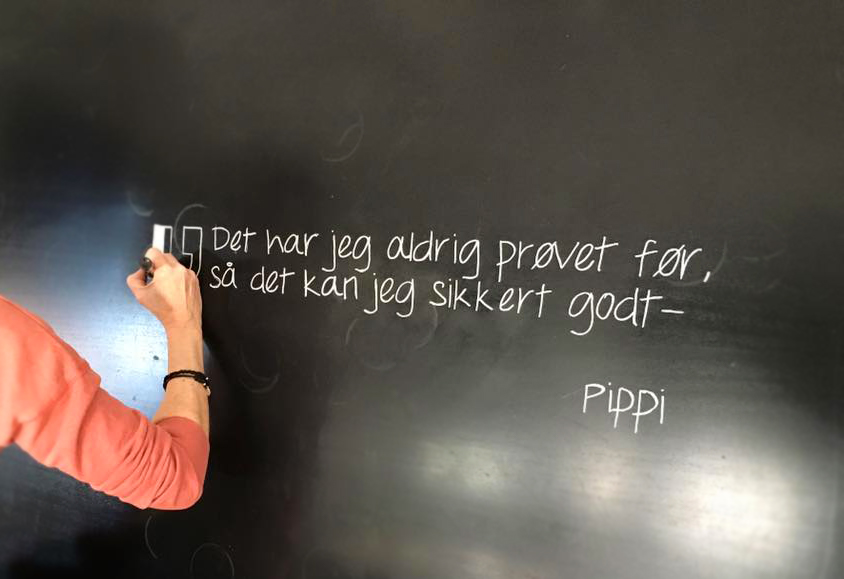 "Det har jeg aldrig prøvet før,
så det kan jeg sikkert godt-
Pippi